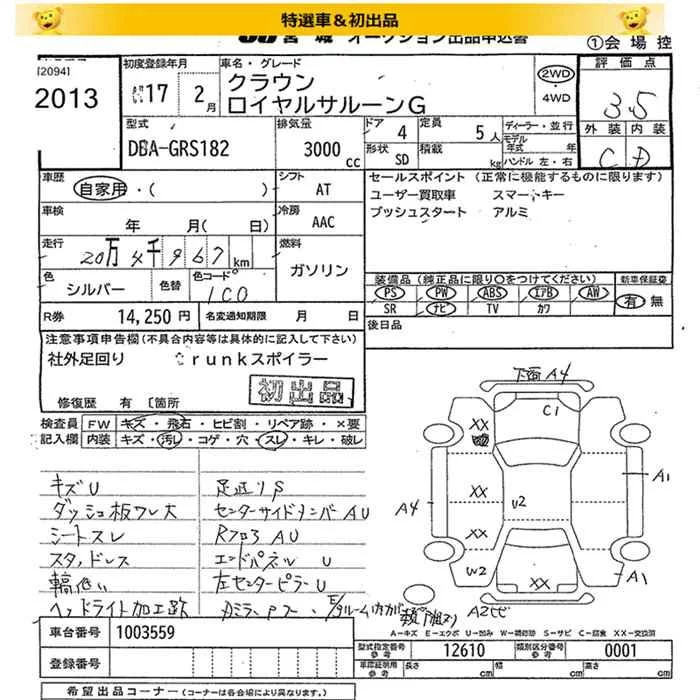 特選車＆初出品
宮城 オークション出品申込書
①会場控
[2094]
2013
初度登録年月
17 2月
車名・グレード
クラウン
ロイヤルサルーンG
2WD
・4WD
評価点
3.5
外装 内装
C D
型式
DBA-GRS182
排気量
3000 cc
ドア 4
定員 5人
形状 SD
積載 kg
ディーラー・並行
モデル年式 年式
ハンドル 左・右
車歴
自家用・( )
シフト AT
セールスポイント (正常に機能するものに限ります)
ユーザー買取車 スマートキー
プッシュスタート アルミ
車検
年 月( 日)
冷房 AAC
走行
20万4千967km
燃料
ガソリン
色
シルバー
色替
色コード
1C0
装備品 (純正品に限り○をつけてください)
新車保証書
PS PW ABS エアB AW
SR ナビ TV カワ
有 無
R券 14,250円
名変通知期限 月 日
後日品
注意事項申告欄(不具合内容等は具体的に記入して下さい)
社外足回り TrunkスポイラーI
初出品
修復歴 有 [箇所
検査員記入欄
FW キズ・飛石・ヒビ割・リペア跡・×要
内装 キズ・汚レ・コゲ・穴・スレ・キレ・破レ
キズU
ダッシュ板ワレ大
シートスレ
スタッドレス
輪低い
ヘッドライト加工跡
足廻りS
センターサイドメンバーAU
Rフロア AU
エンドパネル U
左センターピラーU
下廻 A4
C1
XX
XX
XX
U2
A4
A1
W2
XX
A1
A2ヒビ
A－キズ E－エクボ U－凹み W－補修跡 S－サビ C－腐食 XX－交換済
車台番号 1003559
登録番号
型式指定番号 参考 12610
類別区分番号 参考 0001
車庫証明用 参考 長さ cm 幅 cm 高さ cm
希望出品コーナー (コーナーは各会場により異なります。)